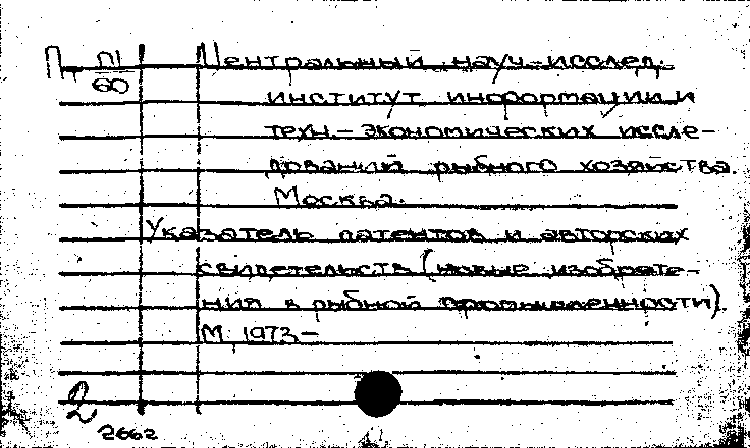 П III/60
Центральный науч.-исслед.
институт информации и
техн.-экономических иссле-
дований рыбного хозяйства.
Москва.
Указатель патентов и авторских
свидетельств (новые изобрете-
ния в рыбной промышленности).
М., 1973-
2
2662